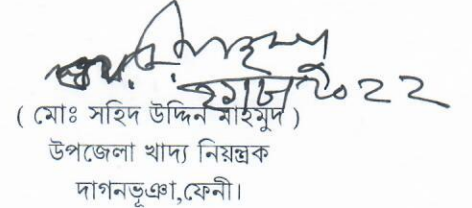 ( মোঃ সহিদ উদ্দিন মাহমুদ )
উপজেলা খাদ্য নিয়ন্ত্রক
দাগনভূঞা,ফেনী।